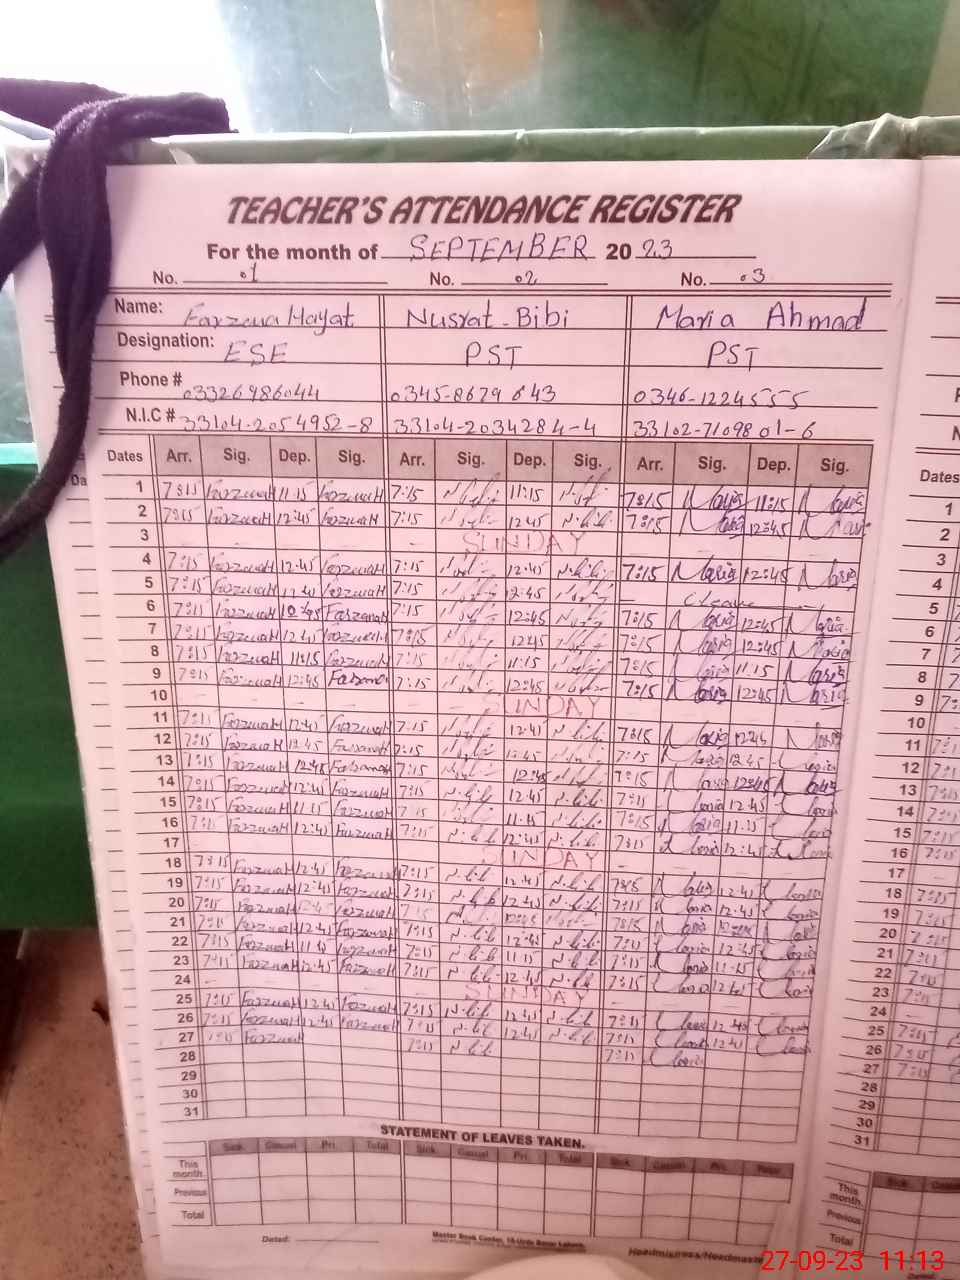 TEACHER'S ATTENDANCE REGISTER
For the month of SEPTEMBER 20 23
No. 01 No. 02 No. 03
Name: Farzana Hayat Nusrat Bibi Maria Ahmad
Designation: ESE PST PST
Phone # 03326986044 0345-8679643 0346-1224555
N.I.C # 33104-2054952-8 33104-2034284-4 33102-7109801-6
Dates Arr. Sig. Dep. Sig. Arr. Sig. Dep. Sig. Arr. Sig. Dep. Sig.
Dates
1 7:15 FarzanaH 11:15 FarzanaH 7:15 11:15 7:15 Maria 11:15 Maria
2 7:15 FarzanaH 12:45 FarzanaH 7:15 12:45 7:15 Maria 12:45 Maria
3 SUNDAY
4 7:15 FarzanaH 12:45 FarzanaH 7:15 12:45 7:15 Maria 12:45 Maria
5 7:15 FarzanaH 7:15 12:45 C leave
6 7:15 FarzanaH 12:45 FarzanaH 7:15 12:45 7:15 Maria 12:45 Maria
7 7:15 FarzanaH 12:45 FarzanaH 7:15 12:45 7:15 Maria 12:45 Maria
8 7:15 FarzanaH 11:15 FarzanaH 7:15 11:15 7:15 Maria 11:15 Maria
9 7:15 FarzanaH 12:45 Farzana 7:15 12:45 7:15 Maria 12:45 Maria
10 SUNDAY
11 7:15 FarzanaH 12:45 FarzanaH 7:15 12:45 7:15 Maria 12:45 Maria
12 7:15 FarzanaH 12:45 FarzanaH 7:15 12:45 7:15 Maria 12:45 Maria
13 7:15 FarzanaH 12:45 FarzanaH 7:15 12:45 7:15 Maria 12:45 Maria
14 7:15 FarzanaH 12:45 FarzanaH 7:15 N.bibi 12:45 N.bibi 7:15 Maria 12:45 Maria
15 7:15 FarzanaH 11:15 FarzanaH 7:15 N.bibi 11:15 N.bibi 7:15 Maria 11:15 Maria
16 7:15 FarzanaH 12:45 FarzanaH 7:15 N.bibi 12:45 N.bibi 7:15 Maria 12:45 Maria
17 SUNDAY
18 7:15 FarzanaH 12:45 FarzanaH 7:15 N.bibi 12:45 N.bibi 7:15 Maria 12:45 Maria
19 7:15 FarzanaH 12:45 FarzanaH 7:15 N.bibi 12:45 N.bibi 7:15 Maria 12:45 Maria
20 7:15 FarzanaH 12:45 FarzanaH 7:15 12:45 7:15 Maria Maria
21 7:15 FarzanaH 12:45 FarzanaH 7:15 N.bibi 12:45 N.bibi 7:15 Maria 12:45 Maria
22 7:15 FarzanaH 11:15 FarzanaH 7:15 N.bibi 11:15 N.bibi 7:15 Maria 11:15 Maria
23 7:15 FarzanaH 12:45 FarzanaH 7:15 N.bibi 12:45 N.bibi 7:15 Maria 12:45 Maria
24 SUNDAY
25 7:15 FarzanaH 12:45 FarzanaH 7:15 N.bibi 12:45 N.bibi 7:15 Maria 12:45 Maria
26 7:15 FarzanaH 12:45 FarzanaH 7:15 N.bibi 12:45 N.bibi 7:15 Maria 12:45 Maria
27 7:15 FarzanaH 7:15 N.bibi 7:15 Maria
28
29
30
31
STATEMENT OF LEAVES TAKEN.
Sick Casual Pri. Total Sick Casual Pri. Total Sick Casual Pri. Total
This month
Previous
Total
Dated:
Master Book Center, 18-Urdu Bazar Lahore.
Headmistress/Headmaster
1
2
3
4
5
6
7
8
9
10
11
12
13
14
15
16
17
18
19
20
21
22
23
24
25
26
27
28
29
30
31
This month
Previous
Total
27-09-23 11:13